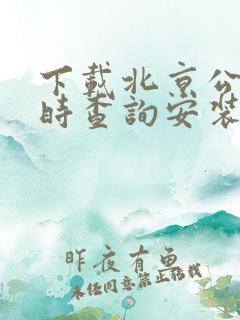 下載北京公
時查詢安裝
昨夜有魚
未经同意禁止搭載